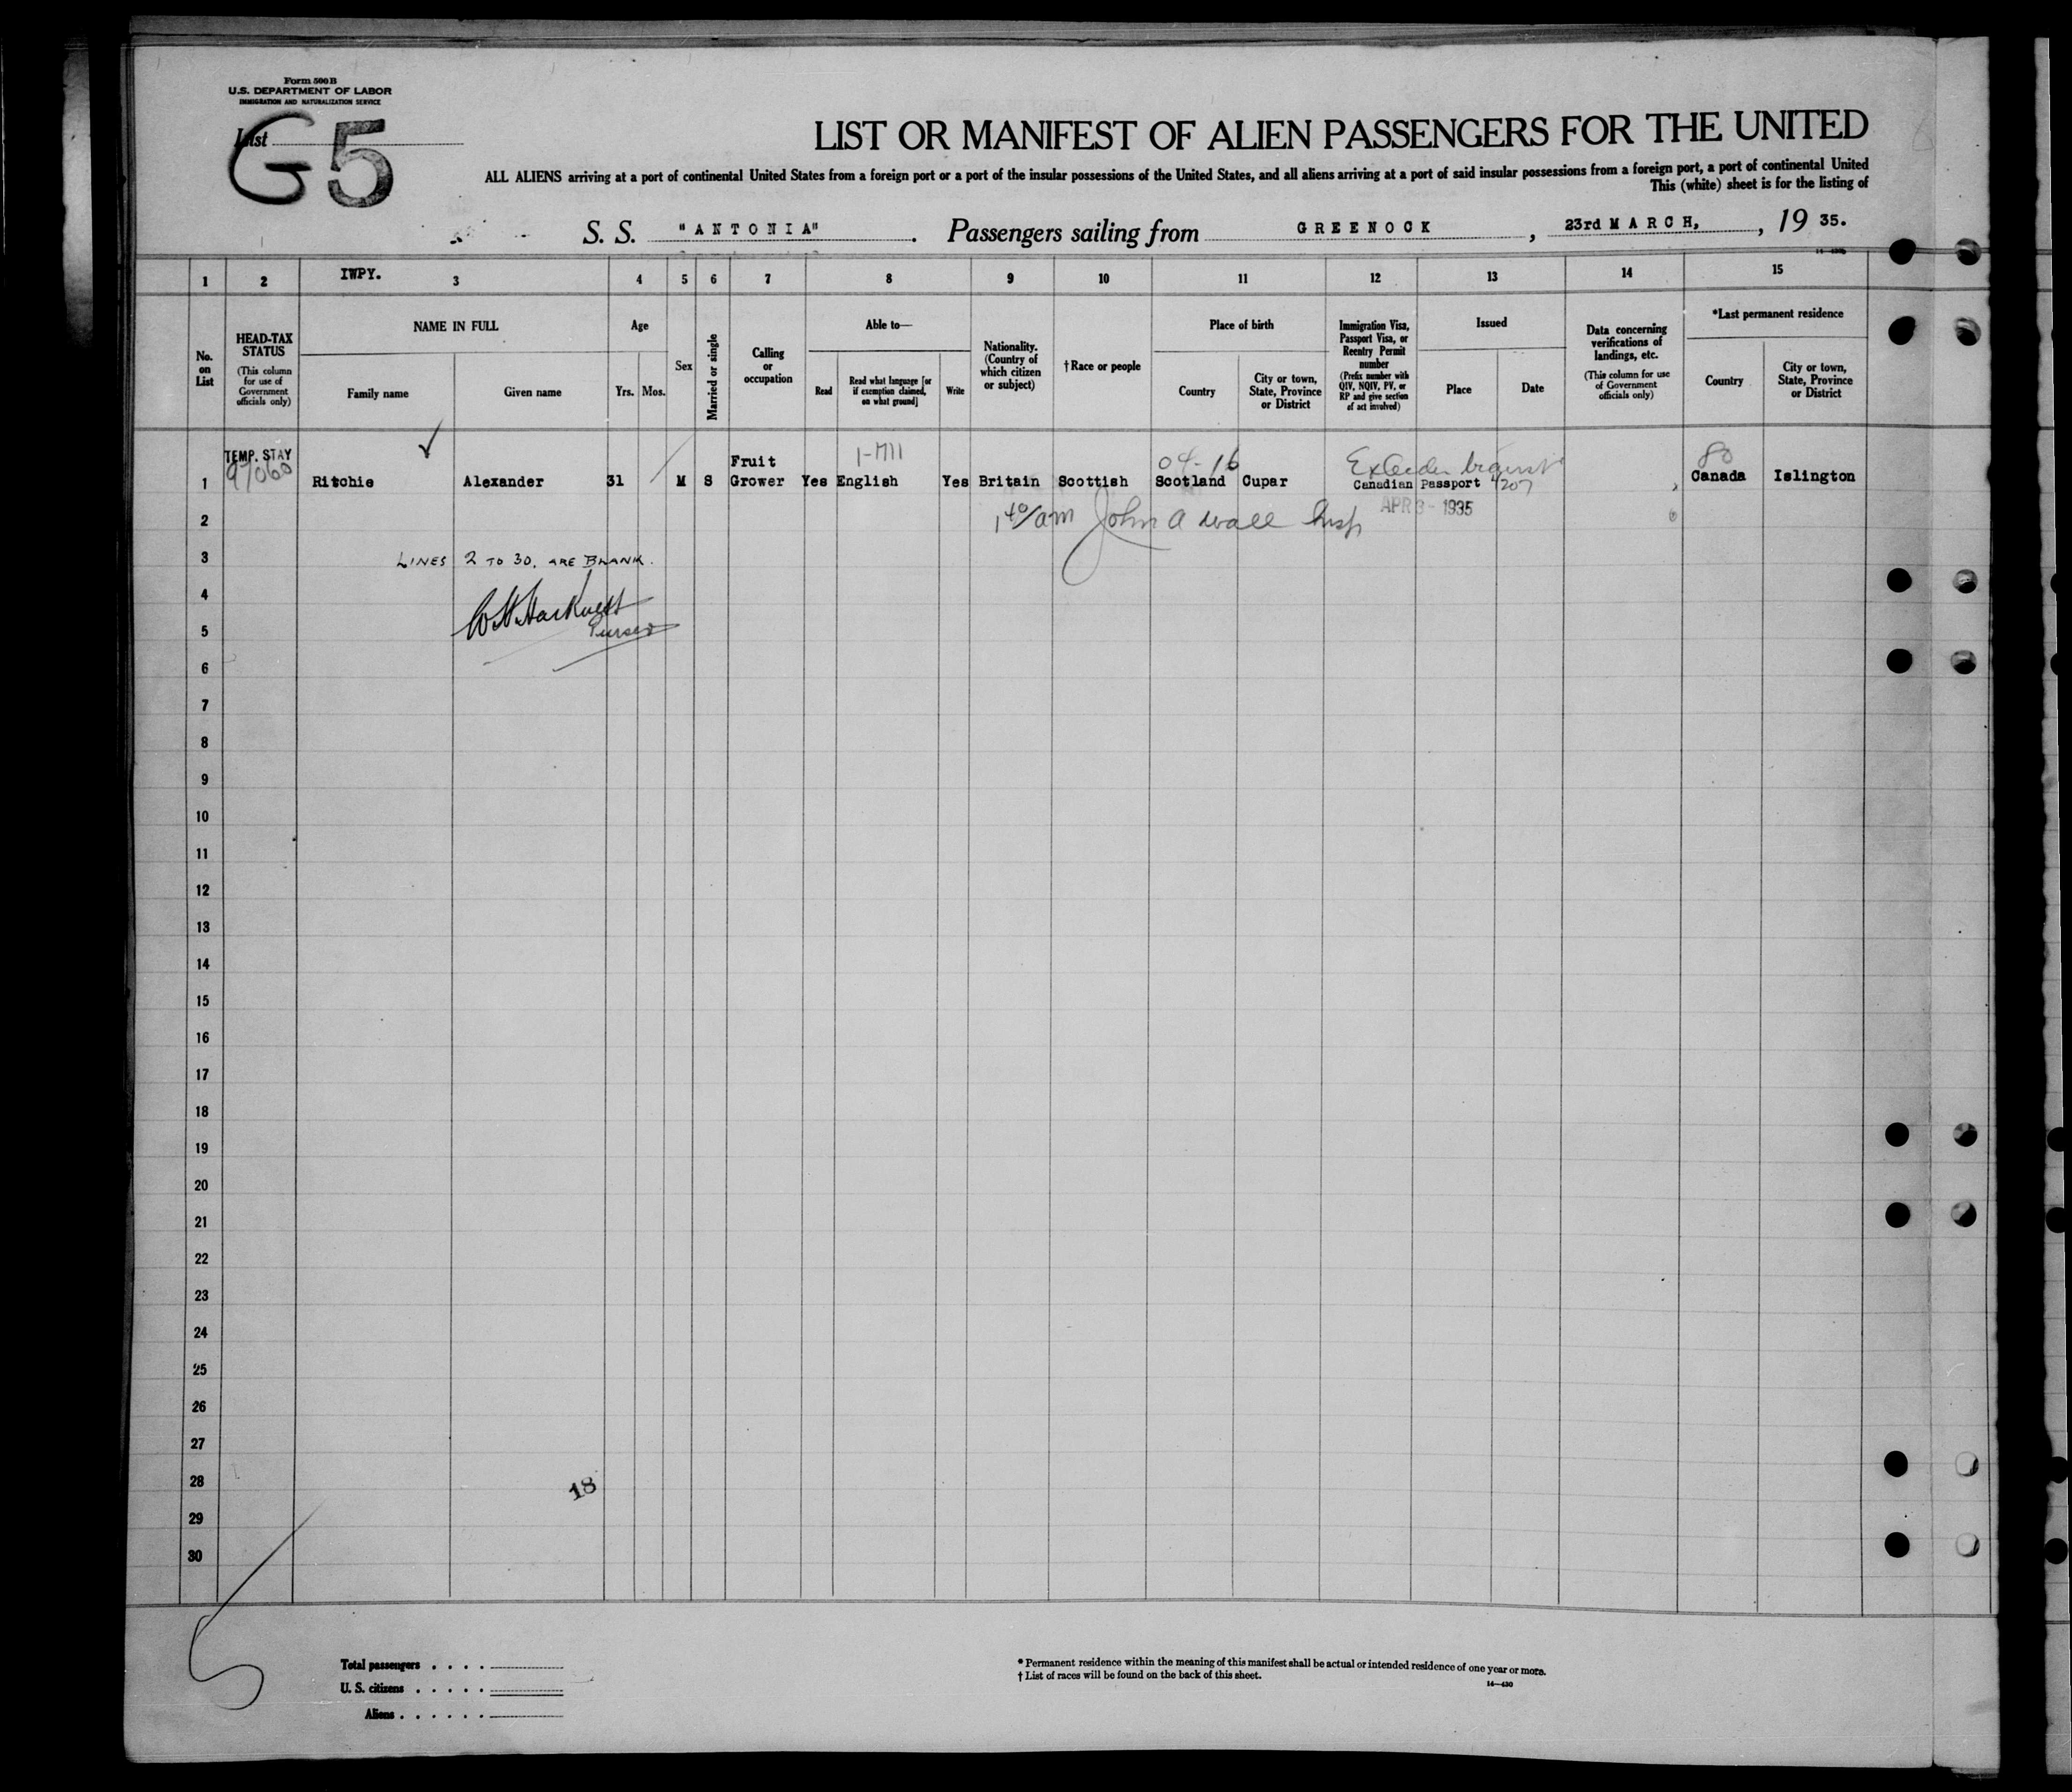 Form 500 B
U.S. DEPARTMENT OF LABOR
IMMIGRATION AND NATURALIZATION SERVICE
List
G 5
LIST OR MANIFEST OF ALIEN PASSENGERS FOR THE UNITED
ALL ALIENS arriving at a port of continental United States from a foreign port or a port of the insular possessions of the United States, and all aliens arriving at a port of said insular possessions from a foreign port, a port of continental United
This (white) sheet is for the listing of
S. S. "ANTONIA". Passengers sailing from GREENOCK, 23rd MARCH, , 19 35.
1 2 IWPY. 3 4 5 6 7 8 9 10 11 12 13 14 15
No. on List
HEAD-TAX STATUS
(This column for use of Government officials only)
NAME IN FULL
Family name
Given name
Age
Yrs. Mos.
Sex
Married or single
Calling or occupation
Able to—
Read
Read what language [or if exemption claimed, on what ground]
Write
Nationality. (Country of which citizen or subject)
†Race or people
Place of birth
Country
City or town, State, Province or District
Immigration Visa, Passport Visa, or Reentry Permit number
(Prefix number with QIV, NQIV, PV, or RP and give section of act involved)
Issued
Place
Date
Data concerning verifications of landings, etc.
(This column for use of Government officials only)
*Last permanent residence
Country
City or town, State, Province or District
TEMP. STAY
97060
1-M11
04-16
80
1 Ritchie Alexander 31 M S Fruit Grower Yes English Yes Britain Scottish Scotland Cupar Canadian Passport 4207 Canada Islington
2 1 40/am John A Wall Insp APR 3 - 1935
3 LINES 2 TO 30, ARE BLANK.
4
5 Purser
6
7
8
9
10
11
12
13
14
15
16
17
18
19
20
21
22
23
24
25
26
27
28 18
29
30
Total passengers . . . .
U. S. citizens . . . . .
Aliens . . . . . .
* Permanent residence within the meaning of this manifest shall be actual or intended residence of one year or more.
† List of races will be found on the back of this sheet.
14—430